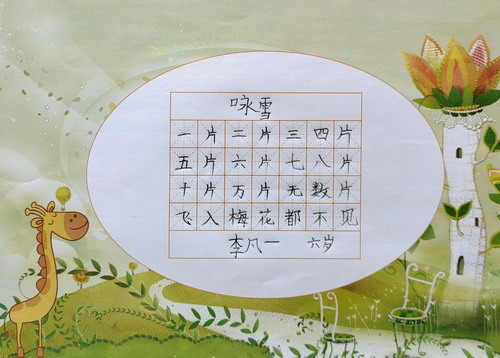 咏雪
一片二片三四片
五片六片七八片
十片万片无数片
飞入梅花都不见
李凡一 六岁